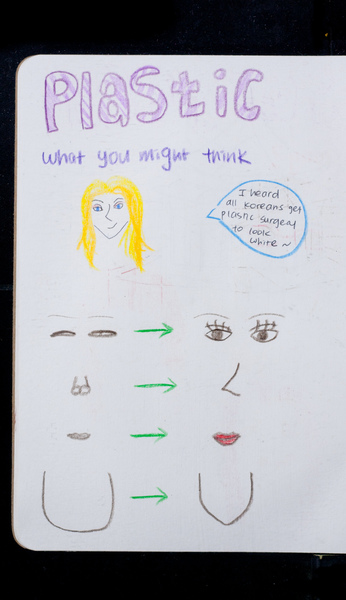 PlaStiC
what you might think
I heard
all Koreans get
plastic surgery
to look
white ~